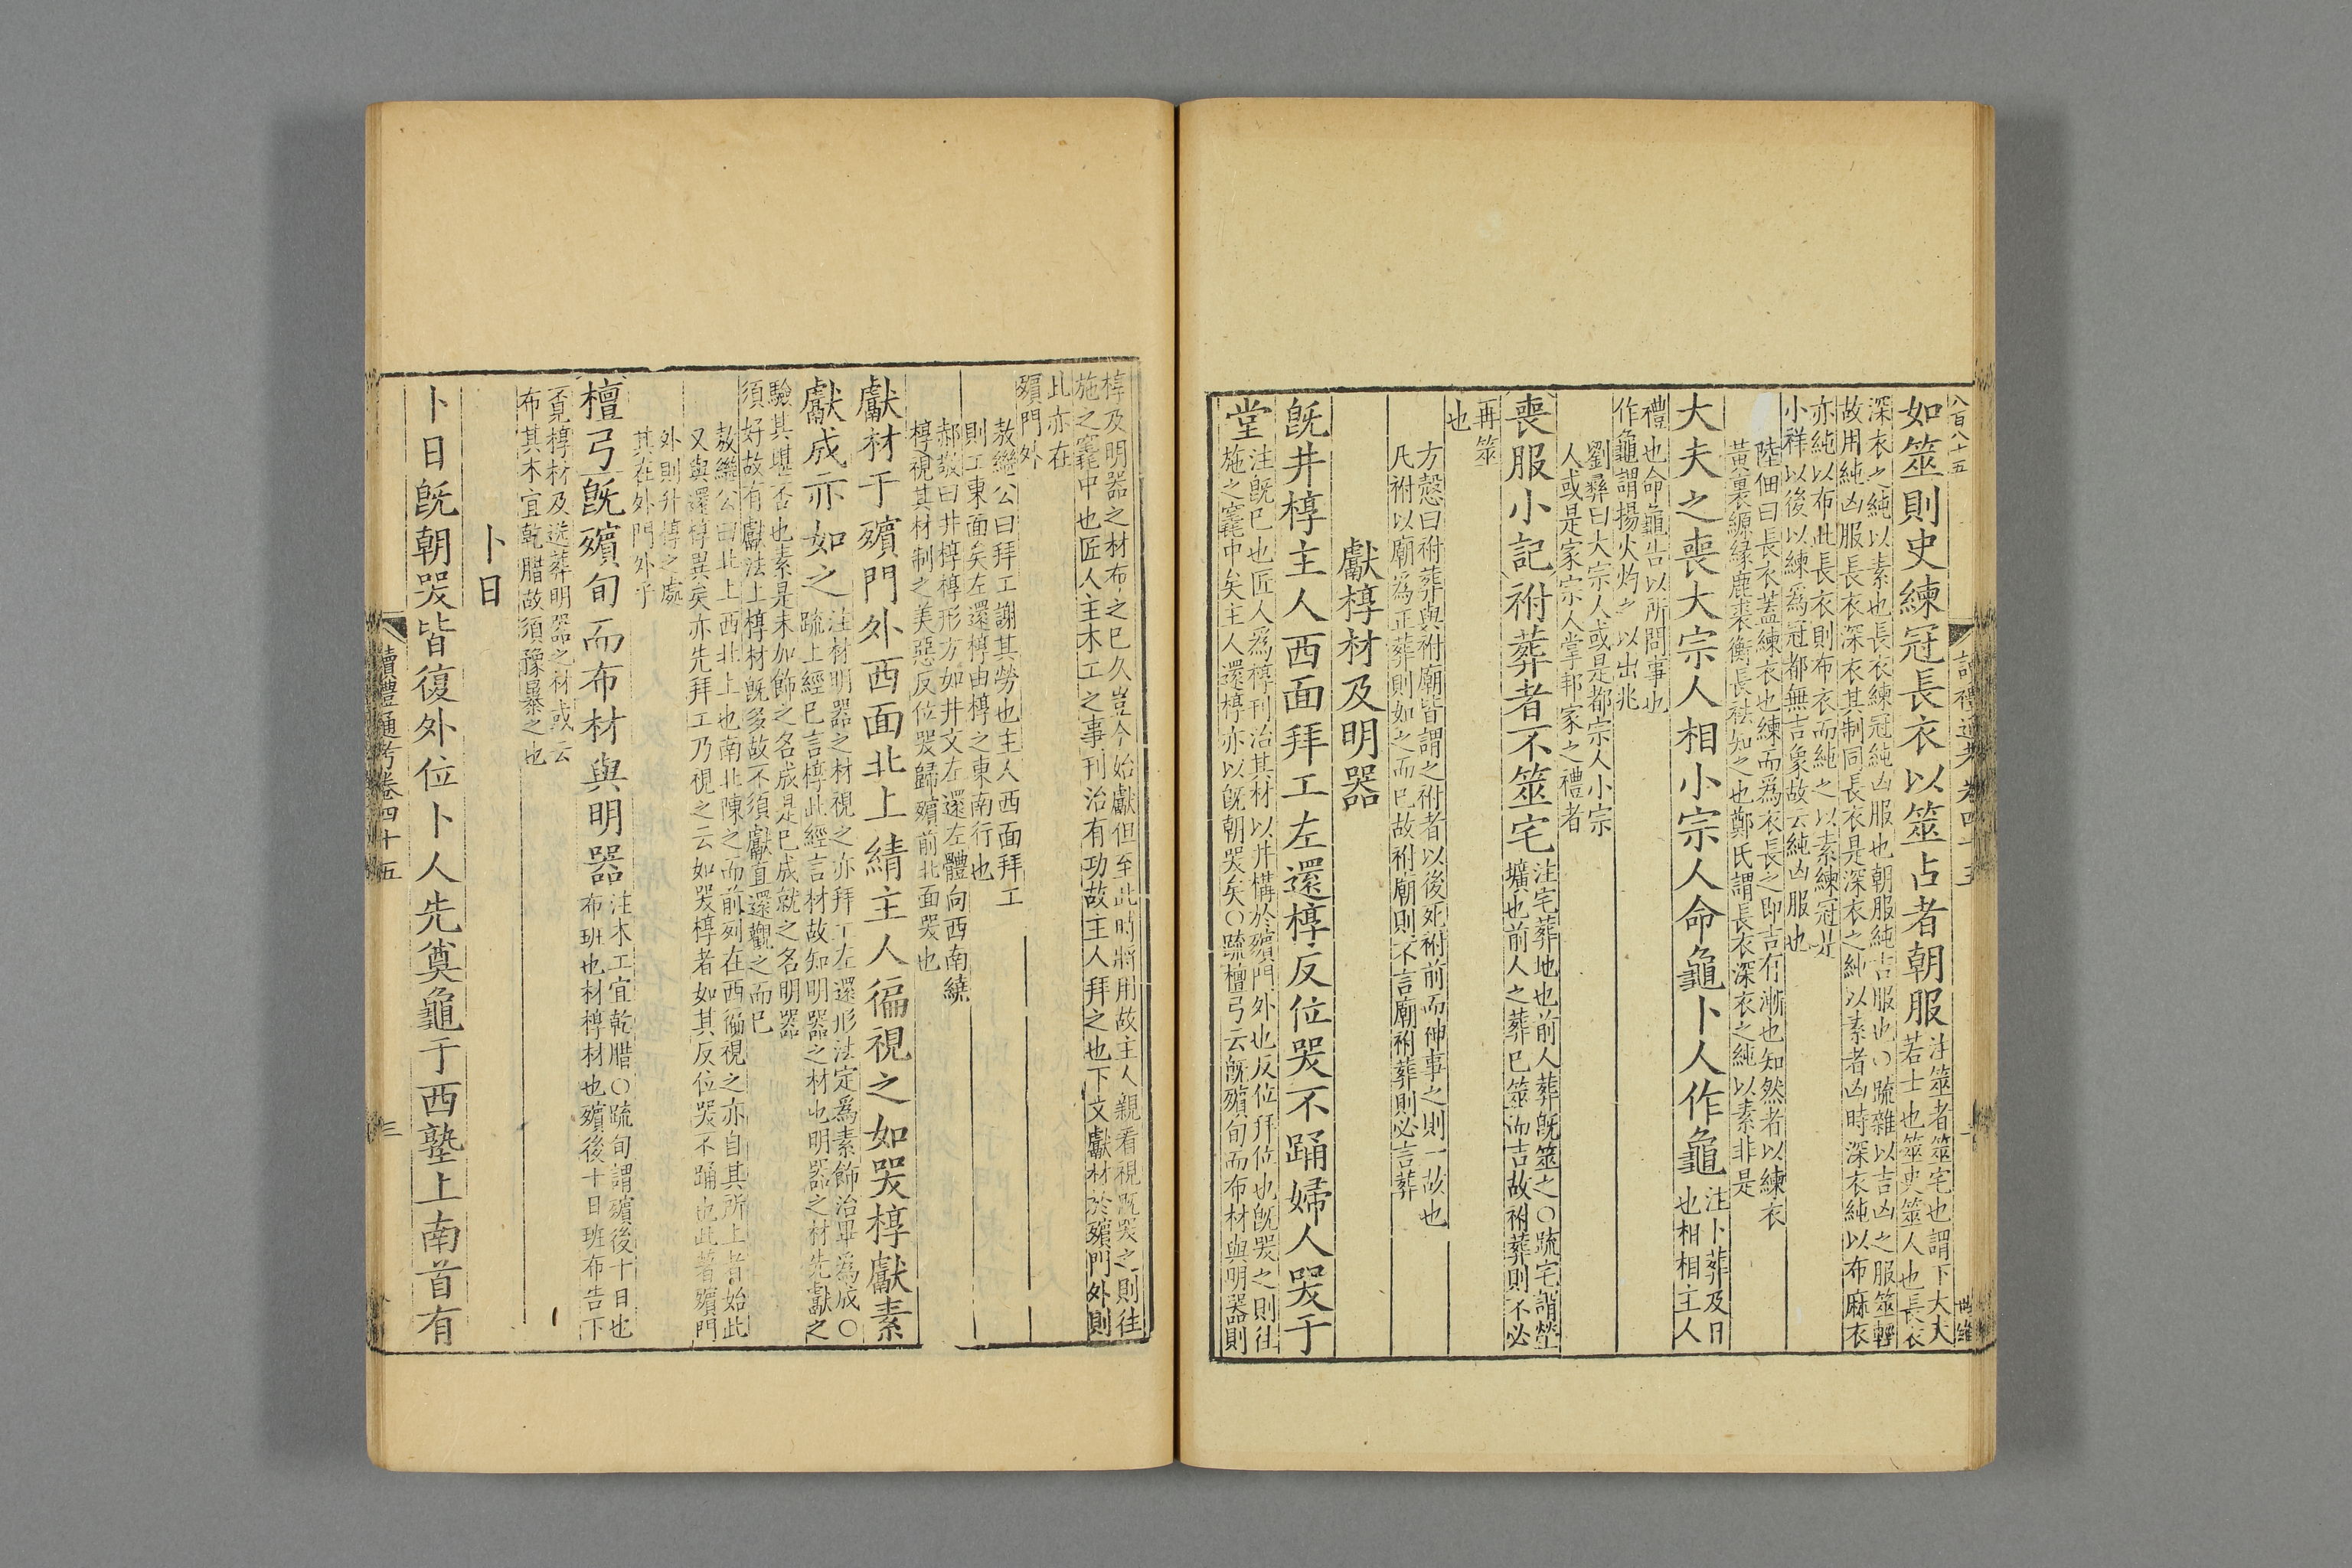 八百八十五
讀禮通考卷四十五
如筮則史練冠長衣以筮占者朝服
注筮者筮宅也謂下大夫
若士也筮史筮人也長衣
深衣之純以素也長衣練冠純凶服也朝服純吉服也○疏雜以吉凶之服筮輕
故用純凶服長衣深衣其制同長衣是深衣之純以素者凶時深衣純以布麻衣
亦純以布此長衣則布衣而純之以素練冠是
小祥以後以練爲冠都無吉象故云純凶服也
陸佃曰長衣蓋練衣也練而爲衣長之即吉有漸也知然者以練衣
黃裏縓緣鹿裘衡長袪知之也鄭氏謂長衣深衣之純以素非是
大夫之喪大宗人相小宗人命龜卜人作龜
注卜葬及日
也相相主人
禮也命龜告以所問事也
作龜謂揚火灼之以出兆
劉彝曰大宗人或是都宗人小宗
人或是家宗人掌邦家之禮者
喪服小記祔葬者不筮宅
注宅葬地也前人葬旣筮之○疏宅謂塋
壙也前人之葬已筮而吉故祔葬則不必
再筮
也
方慤曰祔葬與祔廟皆謂之祔者以後死祔前而神事之則一故也
凡祔以廟爲正葬則如之而已故祔廟則不言廟祔葬則必言葬
獻椁材及明器
旣井椁主人西面拜工左還椁反位哭不踊婦人哭于
堂
注旣已也匠人爲椁刊治其材以井構於殯門外也反位拜位也旣哭之則往
施之竁中矣主人還椁亦以旣朝哭矣○疏檀弓云旣殯旬而布材與明器則
椁及明器之材布之已久豈今始獻但至此時將用故主人親看視旣哭之則往
施之竁中也匠人主木工之事刊治有功故主人拜之也下文獻材於殯門外則
此亦在
殯門外
敖繼公曰拜工謝其勞也主人西面拜工
則工東面矣左還椁由椁之東南行也
郝敬曰井椁椁形方如井文左還左體向西南繞
椁視其材制之美惡反位哭歸殯前北面哭也
獻材于殯門外西面北上綪主人徧視之如哭椁獻素
獻成亦如之
注材明器之材視之亦拜工左還形法定爲素飾治畢爲成○
疏上經已言椁此經言材故知明器之材也明器之材先獻之
驗其堪否也素是未加飾之名成是已成就之名明器
須好故有獻法上椁材旣多故不須獻直還觀之而已
敖繼公曰北上西北上也南北陳之而前列在西徧視之亦自其所上者始此
又與還椁異矣亦先拜工乃視之云如哭椁者如其反位哭不踊也此著殯門
外則井椁之處
其在外門外乎
檀弓旣殯旬而布材與明器
注木工宜乾腊○疏旬謂殯後十日也
布班也材椁材也殯後十日班布告下
覓椁材及送葬明器之材或云
布其木宜乾腊故須豫暴之也
卜日
卜日旣朝哭皆復外位卜人先奠龜于西塾上南首有
讀禮通考卷四十五
三